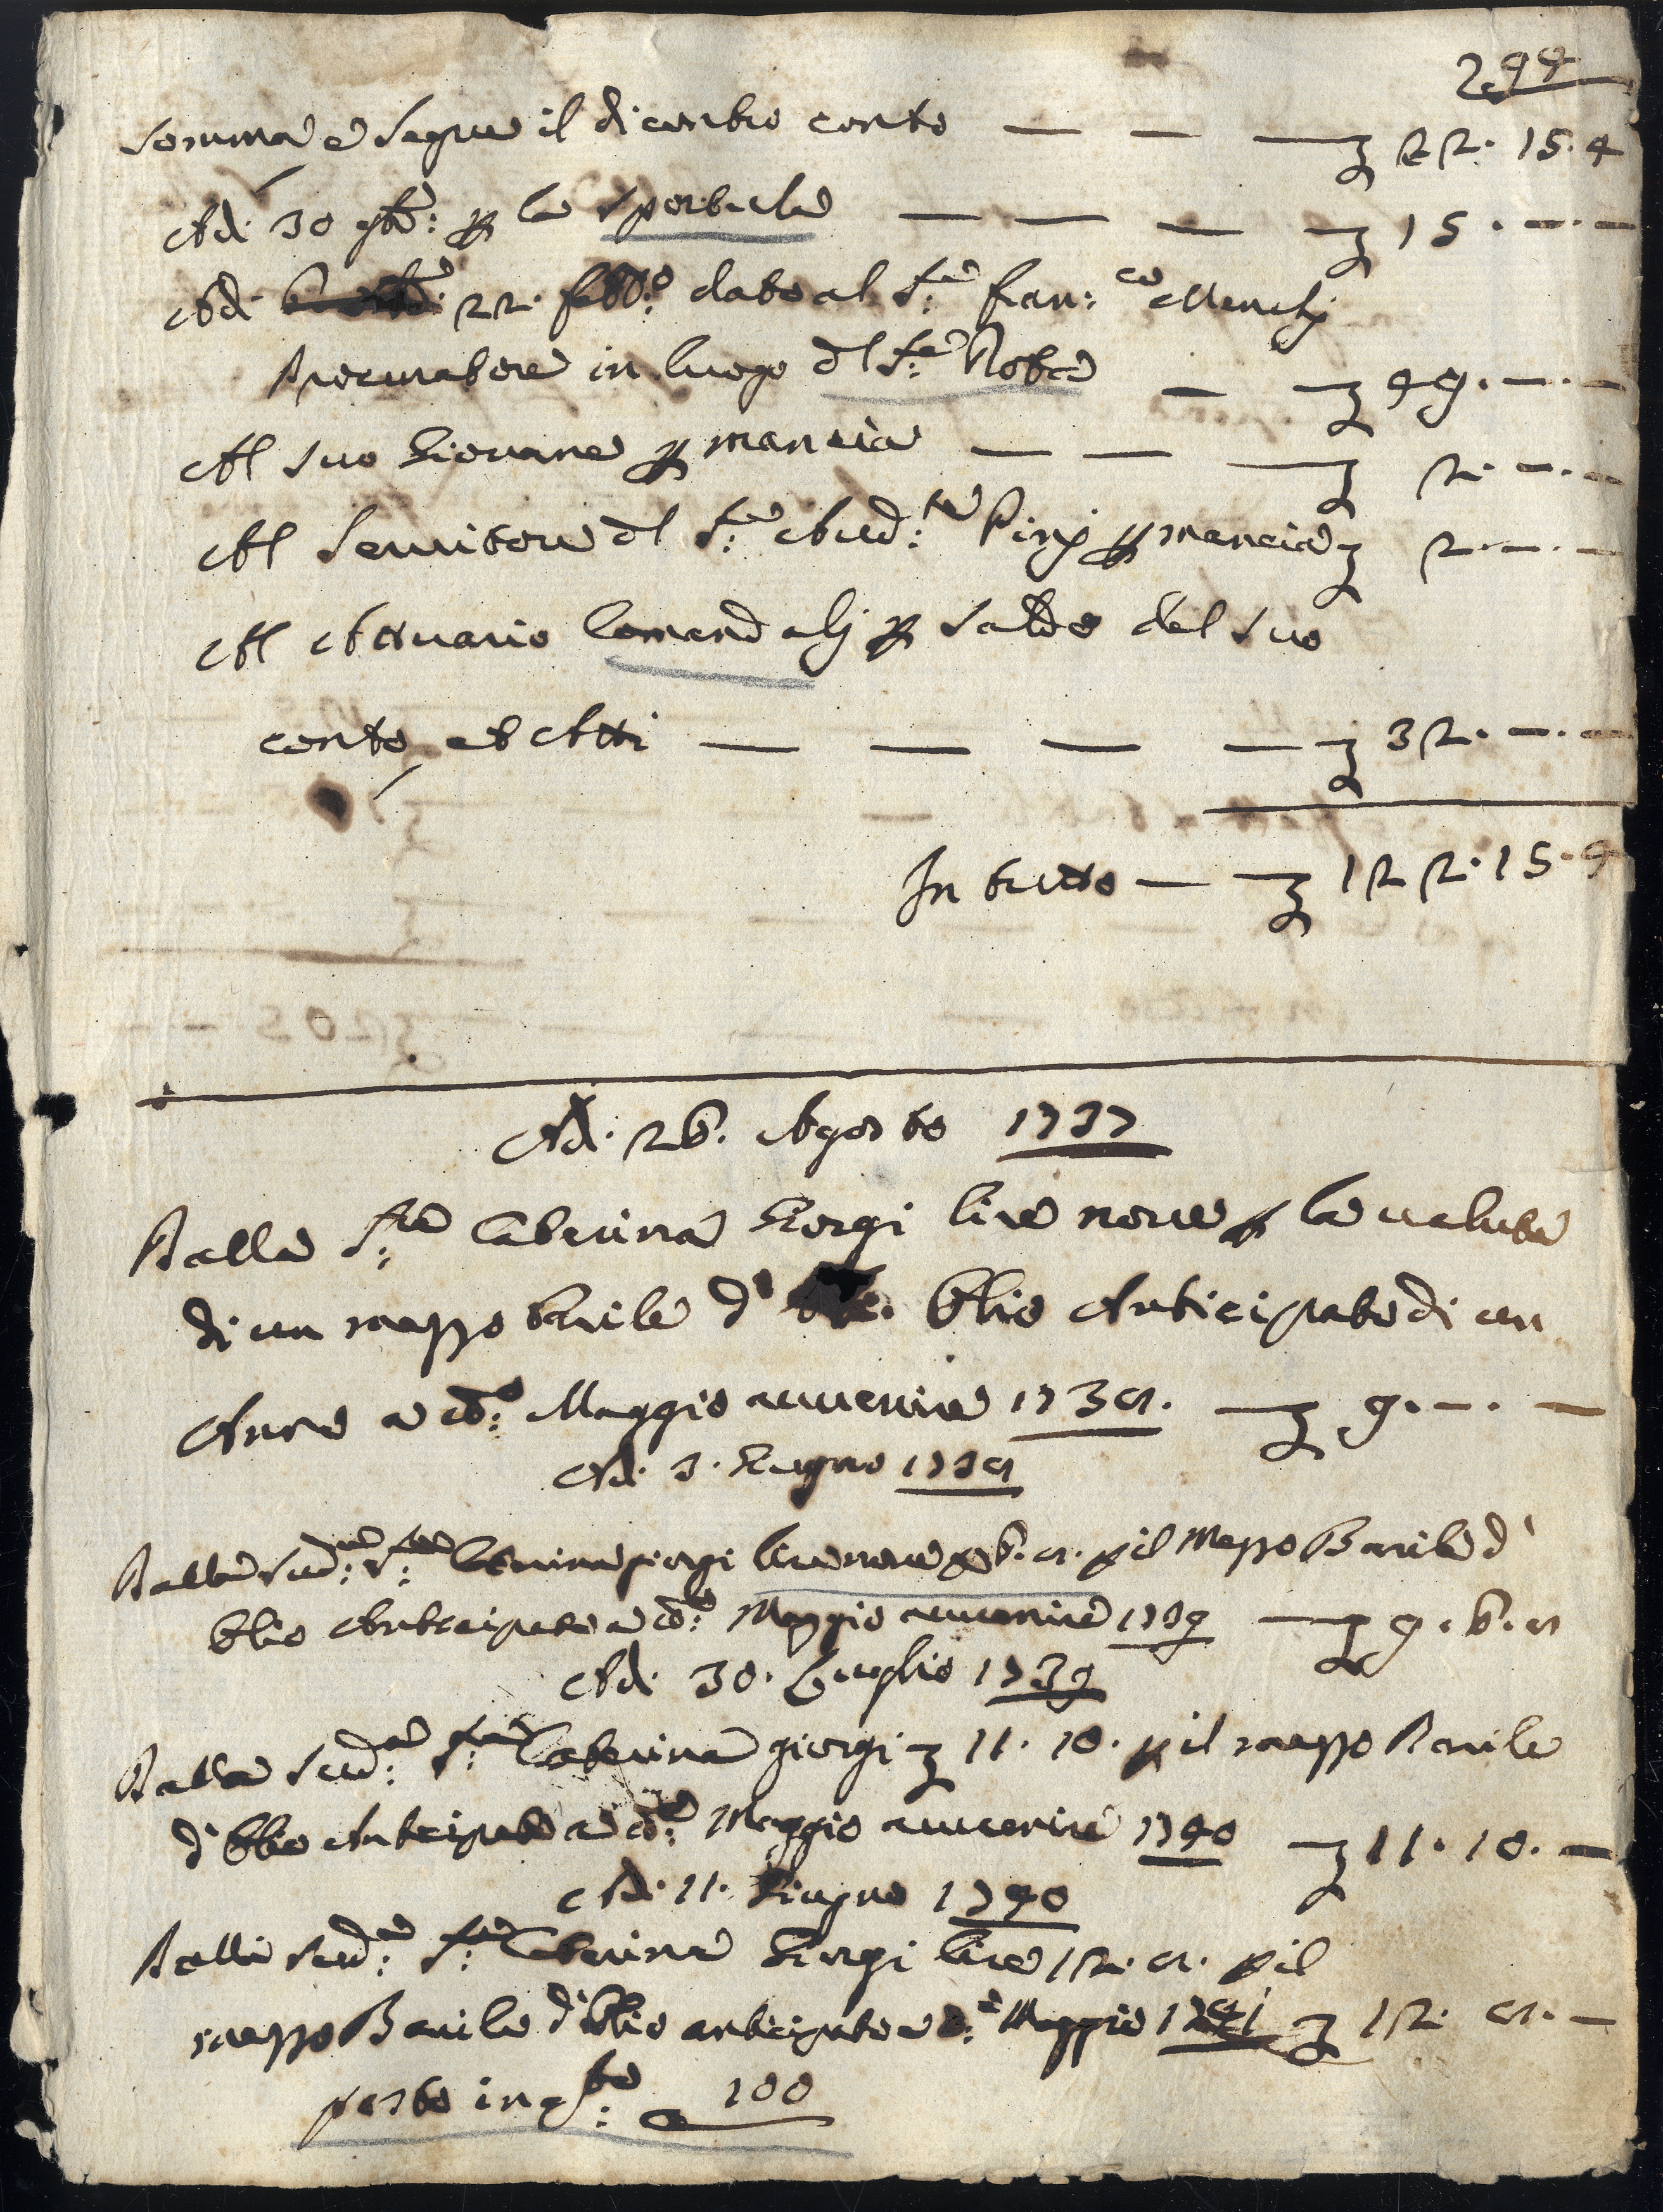 299
Somma e Segue il dicontro conto — — — 22. 15. 4
Adi 30 9bre: p la sportula — — — 15. —. —
Adi 22. febb:o dato al S:e Fran:co Menchj
Procuratore in luogo dl S:e Nobe — 49. —. —
Al suo Giovane p mancia — — — 2. —. —
Al Seruitore dl S:e Aud:re Pinj p mancia 2. —. —
Al Attuario Comandolj p saldo del suo
conto et Atti — — — — 32. —. —
In tutto — 122. 15. 4
Adi. 26. Agosto 1737
Dalla S:ra Caterina Giorgi lire noue p la ualuta
di un mezzo barile d' Olio Anticipato di un
Anno a tt:o Maggio auuenire 1738. — 9. —. —
Adi. 3. Giugno 1738
Dalla Sud:a S:ra Caterina giorgi lire noue e 6. 8. p il Mezzo Barile d'
Olio Anticipato a tt:o Maggio auuenire 1739 — 9. 6. 8
Adi. 30. Luglio 1739
Dalla Sud:a S:ra Caterina giorgi 11. 10. p il mezzo Barile
d' Olio Anticipato a tt:o Maggio auuenire 1740 11. 10. —
Adi. 11. Giugno 1740
Dalla Sud:a S:ra Caterina Giorgi lire 12. 8. p il
mezzo Barile d'Olio anticipato a tt:o Maggio 1741 12. 8. —
posto in q:to 100